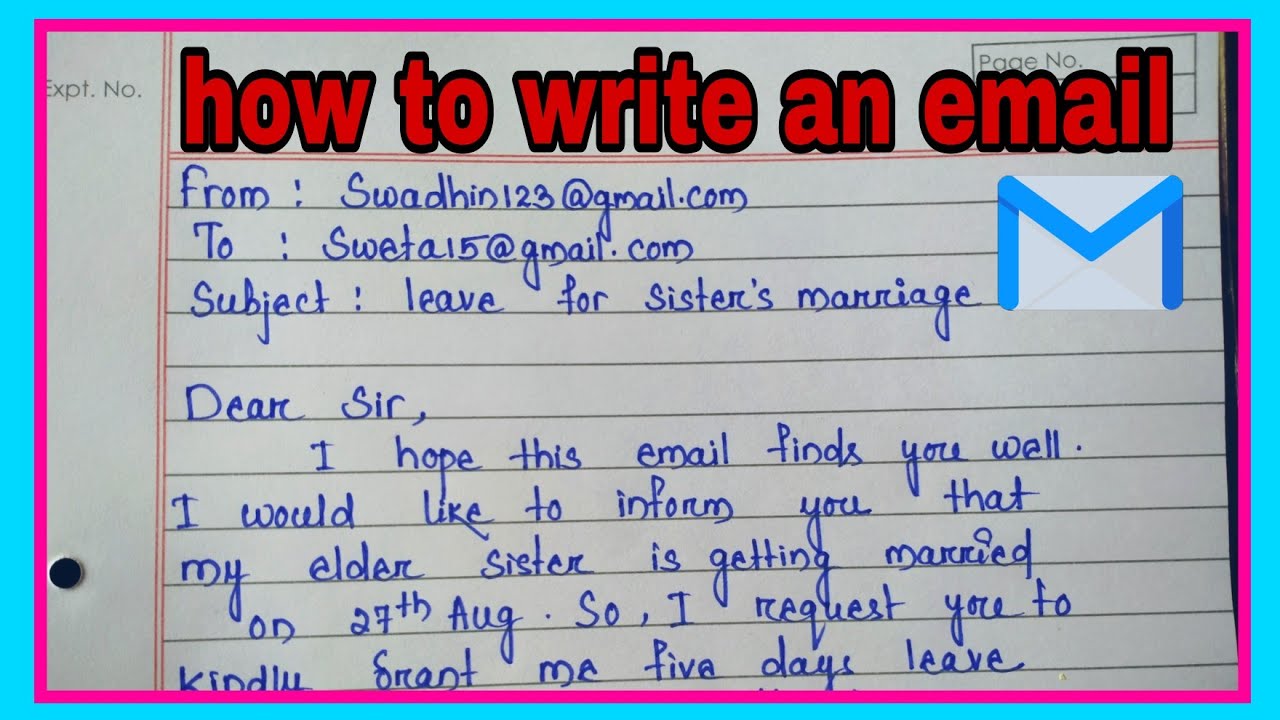 how to write an email
Expt. No.
Page No.
From : Swadhin123@gmail.com
To : Sweta15@gmail.com
Subject : leave for sister's marriage
Dear Sir,
I hope this email finds you well.
I would like to inform you that
my elder sister is getting married
on 27th Aug. So, I request you to
kindly grant me five days leave